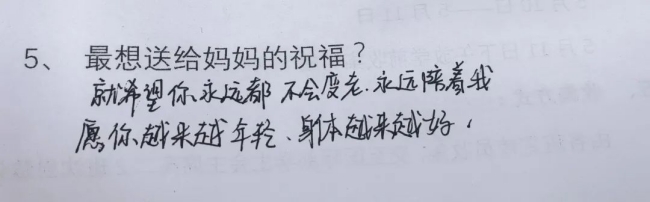 5、最想送给妈妈的祝福？
就希望你永远都不会变老、永远陪着我
愿你越来越年轻、身体越来越好，